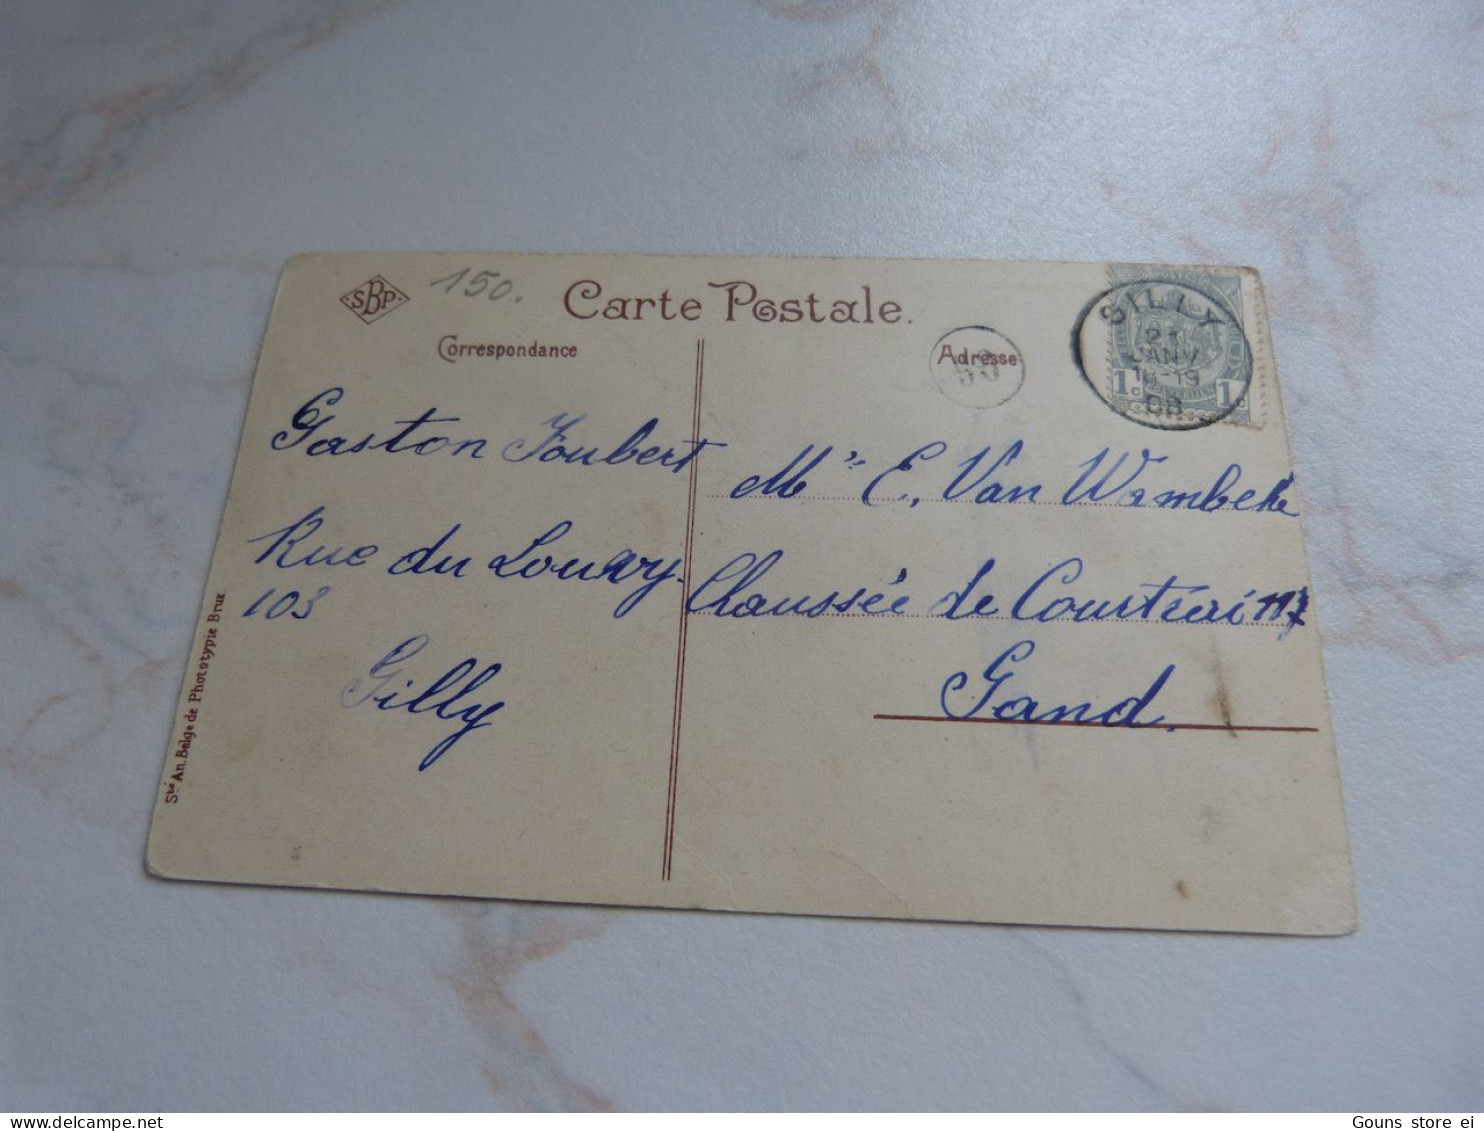 SBP
150.
Carte Postale.
Correspondance
Adresse
GILLY
21
JANV
18-19
08
1c 1c
Gaston Joubert
Rue du Louvy
103
Gilly
Mr E. Van Wambeke
Chaussée de Courtrai 117
Gand.
Sté An. Belge de Phototypie Brux
Gouns store ei